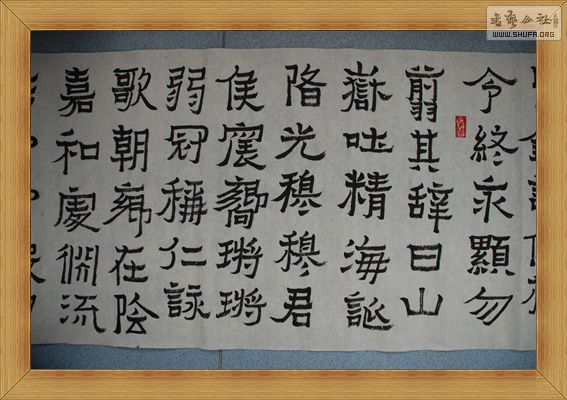 書藝公社
WWW.SHUFA.ORG
令終永顯勿
翦其辭曰山
嶽吐精海誕
陼光穆穆君
侯震響鏘鏘
弱冠稱仁詠
歌朝在陰
嘉和處淵流